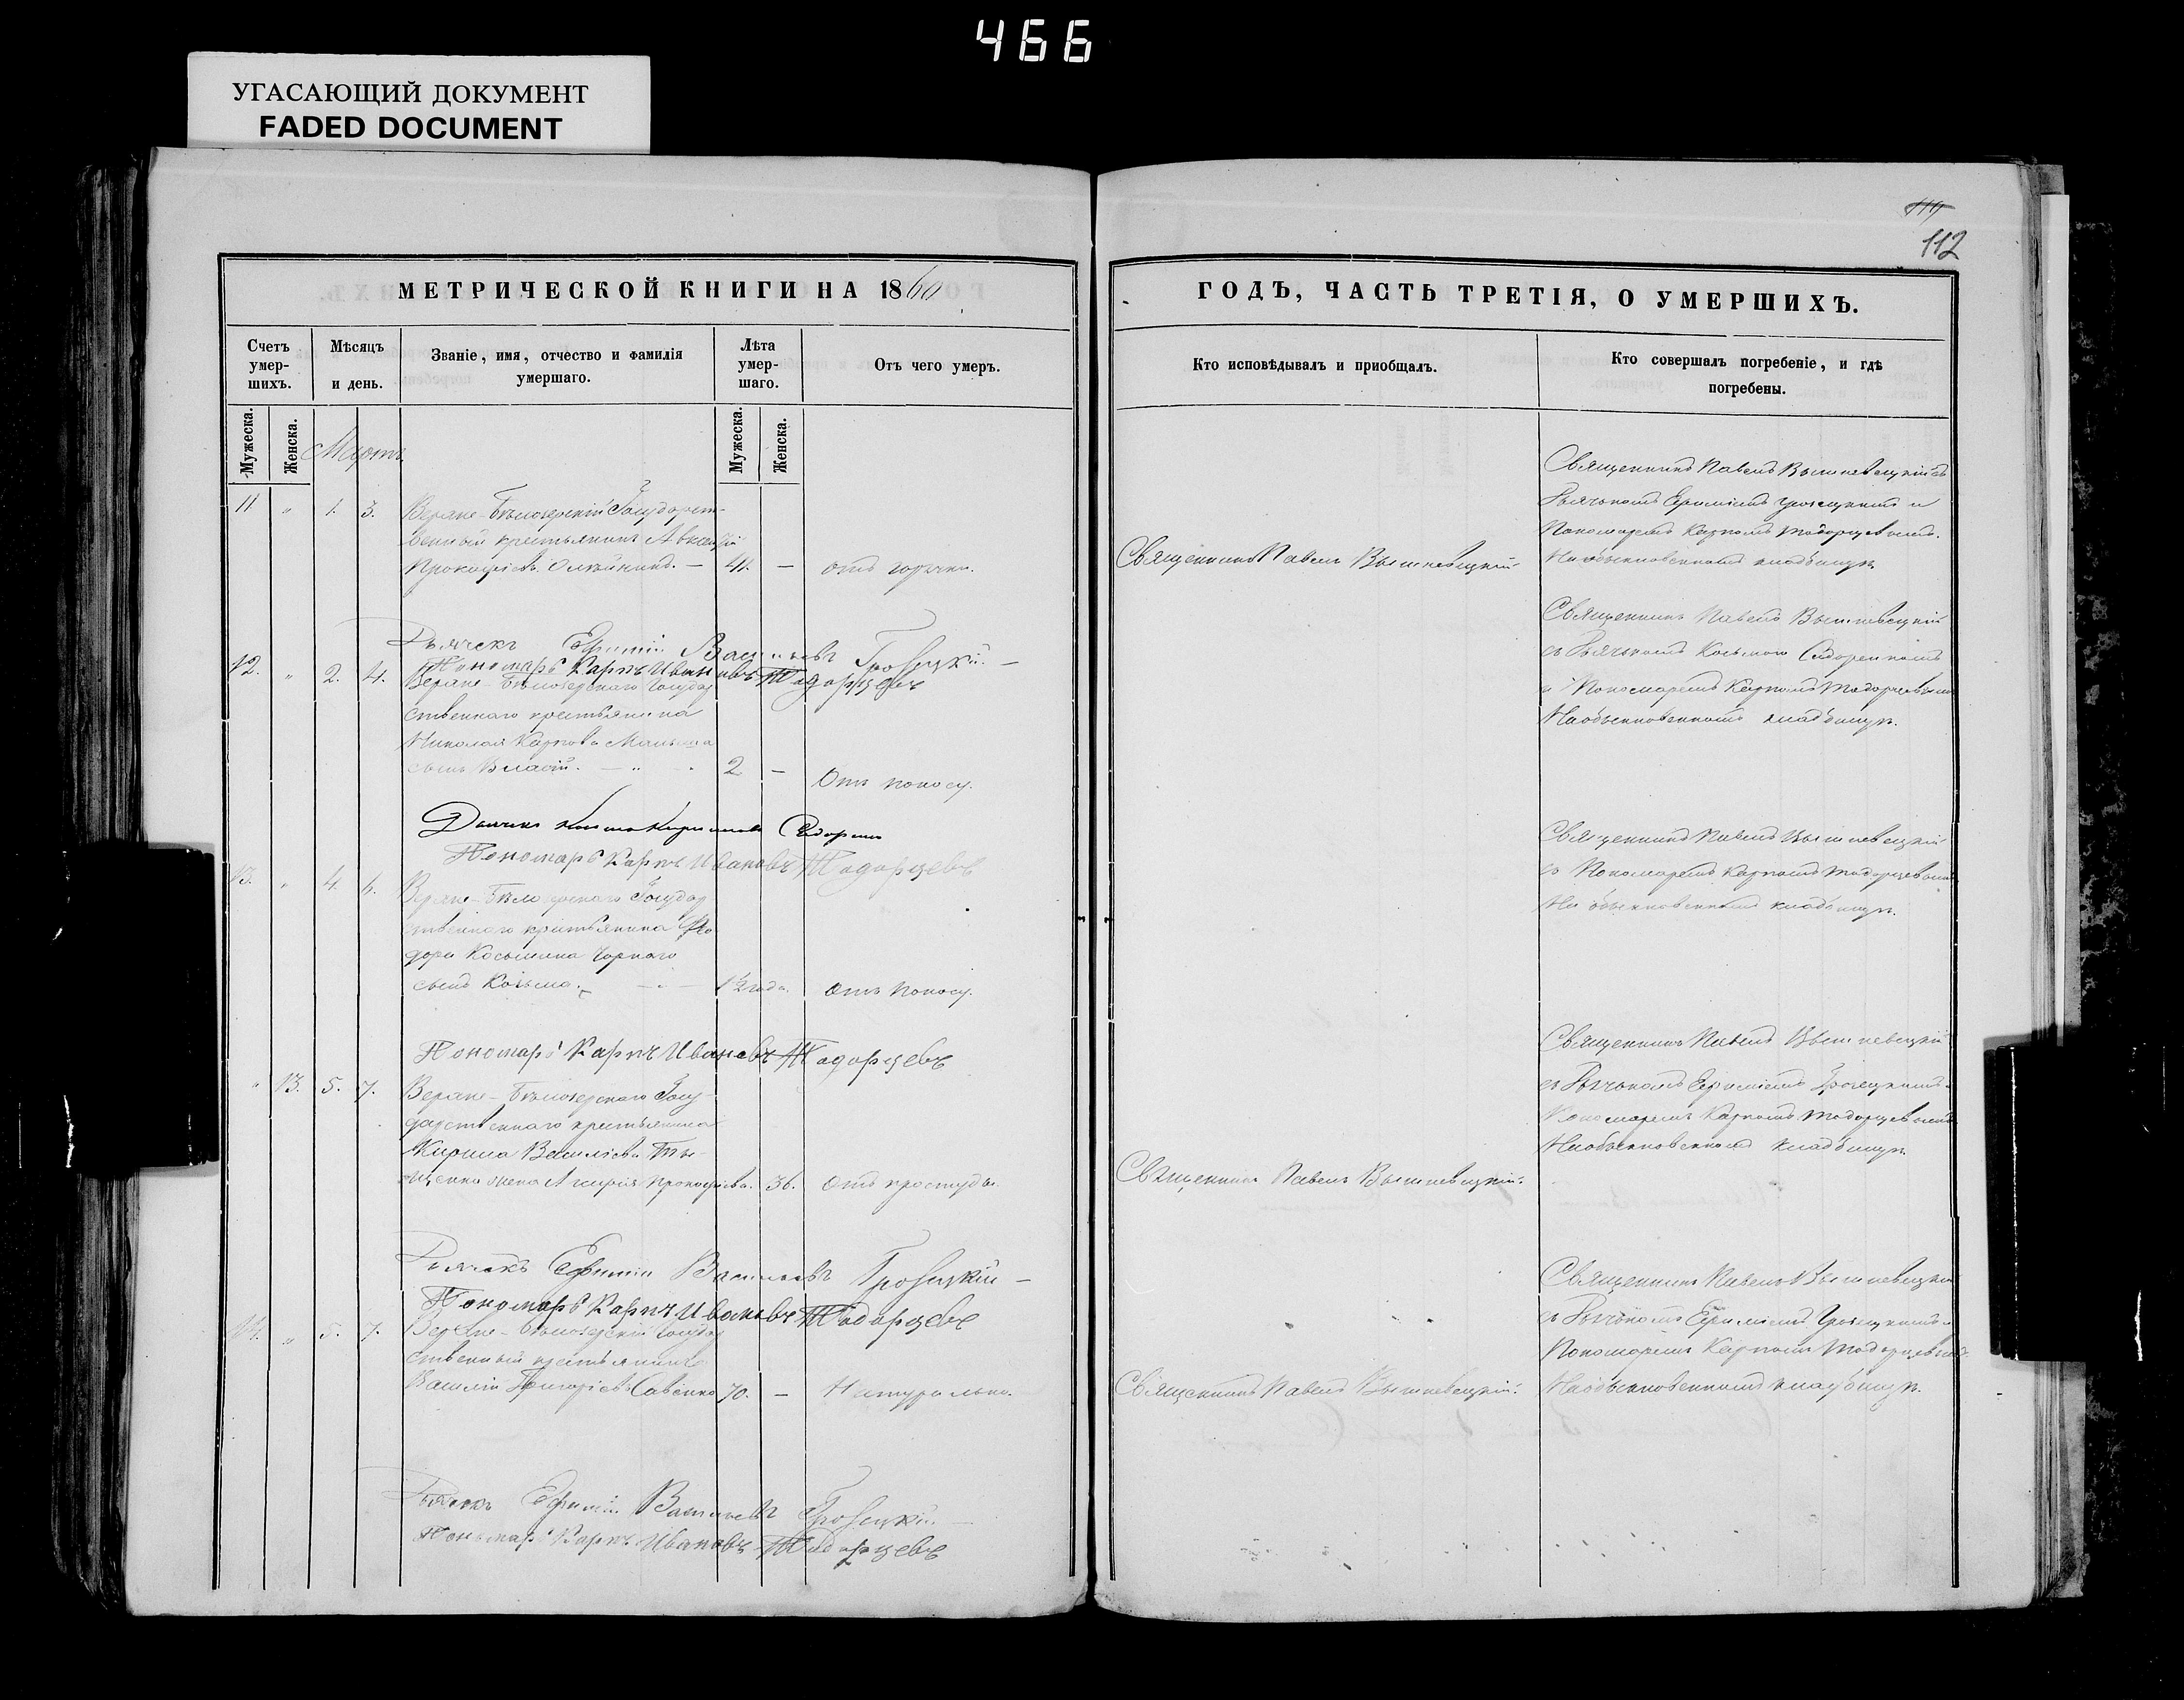 466
УГАСАЮЩИЙ ДОКУМЕНТ
FADED DOCUMENT
119
112
МЕТРИЧЕСКОЙ КНИГИ НА 1860
Счетъ умер-шихъ.
Мѣсяцъ и день.
Званіе, имя, отчество и фамилія умершаго.
Лѣта умер-шаго.
Отъ чего умеръ.
Мужеска.
Женска.
Мартъ
Мужеска.
Женска.
11 " 1. 3. Верхне-Бѣлозерскій Государст-
венный крестьянинъ
Прокофіевъ Олейникъ. — 41. — отъ горячки.
Дьячекъ Ефимій Васильевъ
Пономарь Карпъ Ивановъ Тодорцевъ
12. " 2. 4. Бѣлозерскаго Государ
ственнаго крестьянина
Николая Карпова
сынъ Власій. — " - 2 — Отъ поносу.
Дьячекъ Косма
Пономарь Карпъ Ивановъ Тодорцевъ
13. " 4. 6. Бѣлозерскаго Государ
ственнаго крестьянина Ѳео
дора Косьмина Чорнаго
сынъ Козьма. — 1½ года. Отъ поносу.
Пономарь Карпъ Ивановъ Тодорцевъ
" 13. 5. 7. Бѣлозерскаго Госу-
дарственнаго крестьянина
Кирила Василіева
щенка жена Прокофіева. 36. Отъ простуды.
Дьячекъ Ефимій Васильевъ
Пономарь Карпъ Ивановъ Тодорцевъ
14. " 5. 7. Бѣлозерскій Государ
ственный крестьянинъ
Василій Григоріевъ Савенко 70. — Натурально.
Дьячекъ Ефимій Васильевъ
Пономарь Карпъ Ивановъ Тодорцевъ
ГОДЪ, ЧАСТЬ ТРЕТІЯ, О УМЕРШИХЪ.
Кто исповѣдывалъ и приобщалъ.
Кто совершалъ погребеніе, и гдѣ погребены.
Священникъ Павелъ Вышневецкій.
Священникъ Павелъ Вышневецкій съ
Дьячкомъ Ефиміемъ и
Пономаремъ Карпомъ Тодорцевымъ.
На обыкновенномъ кладбищѣ.
Священникъ Павелъ Вышневецкій
съ Дьячкомъ Козьмою Сидоренкомъ
и Пономаремъ Карпомъ Тодорцевымъ
На обыкновенномъ кладбищѣ.
Священникъ Павелъ Вышневецкій
съ Пономаремъ Карпомъ Тодорцевымъ
На обыкновенномъ кладбищѣ.
Священникъ Павелъ Вышневецкій.
Священникъ Павелъ Вышневецкій
съ Дьячкомъ Ефиміемъ
Пономаремъ Карпомъ Тодорцевымъ
На обыкновенномъ кладбищѣ.
Священникъ Павелъ Вышневецкій.
Священникъ Павелъ Вышневецкій
съ Дьячкомъ Ефиміемъ
Пономаремъ Карпомъ Тодорцевымъ
На обыкновенномъ кладбищѣ.